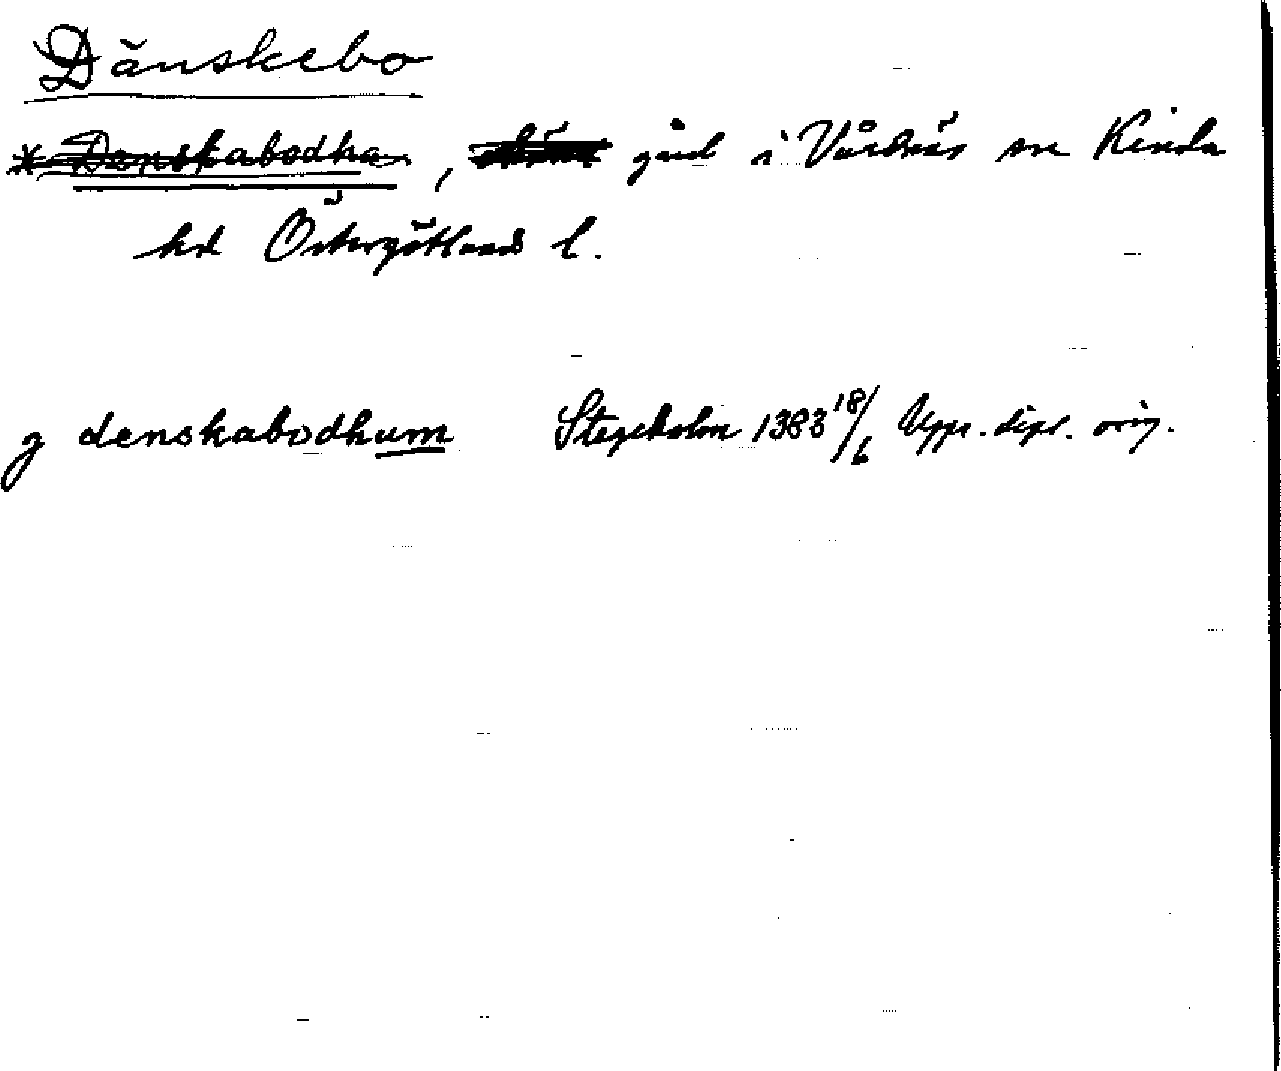 Dänskebo
* Denskabodha, gård i Vårdnäs sn Kinda
hd Östergötlands l.
g denskabodhum Stegeholm 1383 18/6 Upps. dipl. orig.